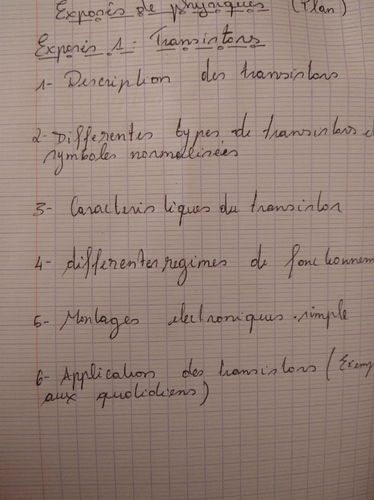 Exposés de physiques (Plan)
Exposés 1: Transistors
1- Description des transistors
2- Differentes types de transistors e
symboles normalisées
3- Caracteristiques du transistor
4- differentes regimes de fonctionnem
5- Montages electroniques simple
6- Application des transistors (Exemp
aux quotidiens)